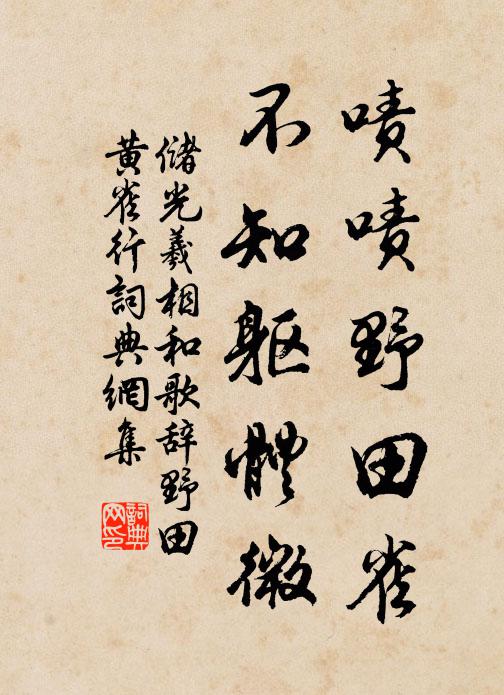 嘖嘖野田雀
不知軀體微
儲光羲相和歌辞野田
黄雀行詞典網集
詞典
网印